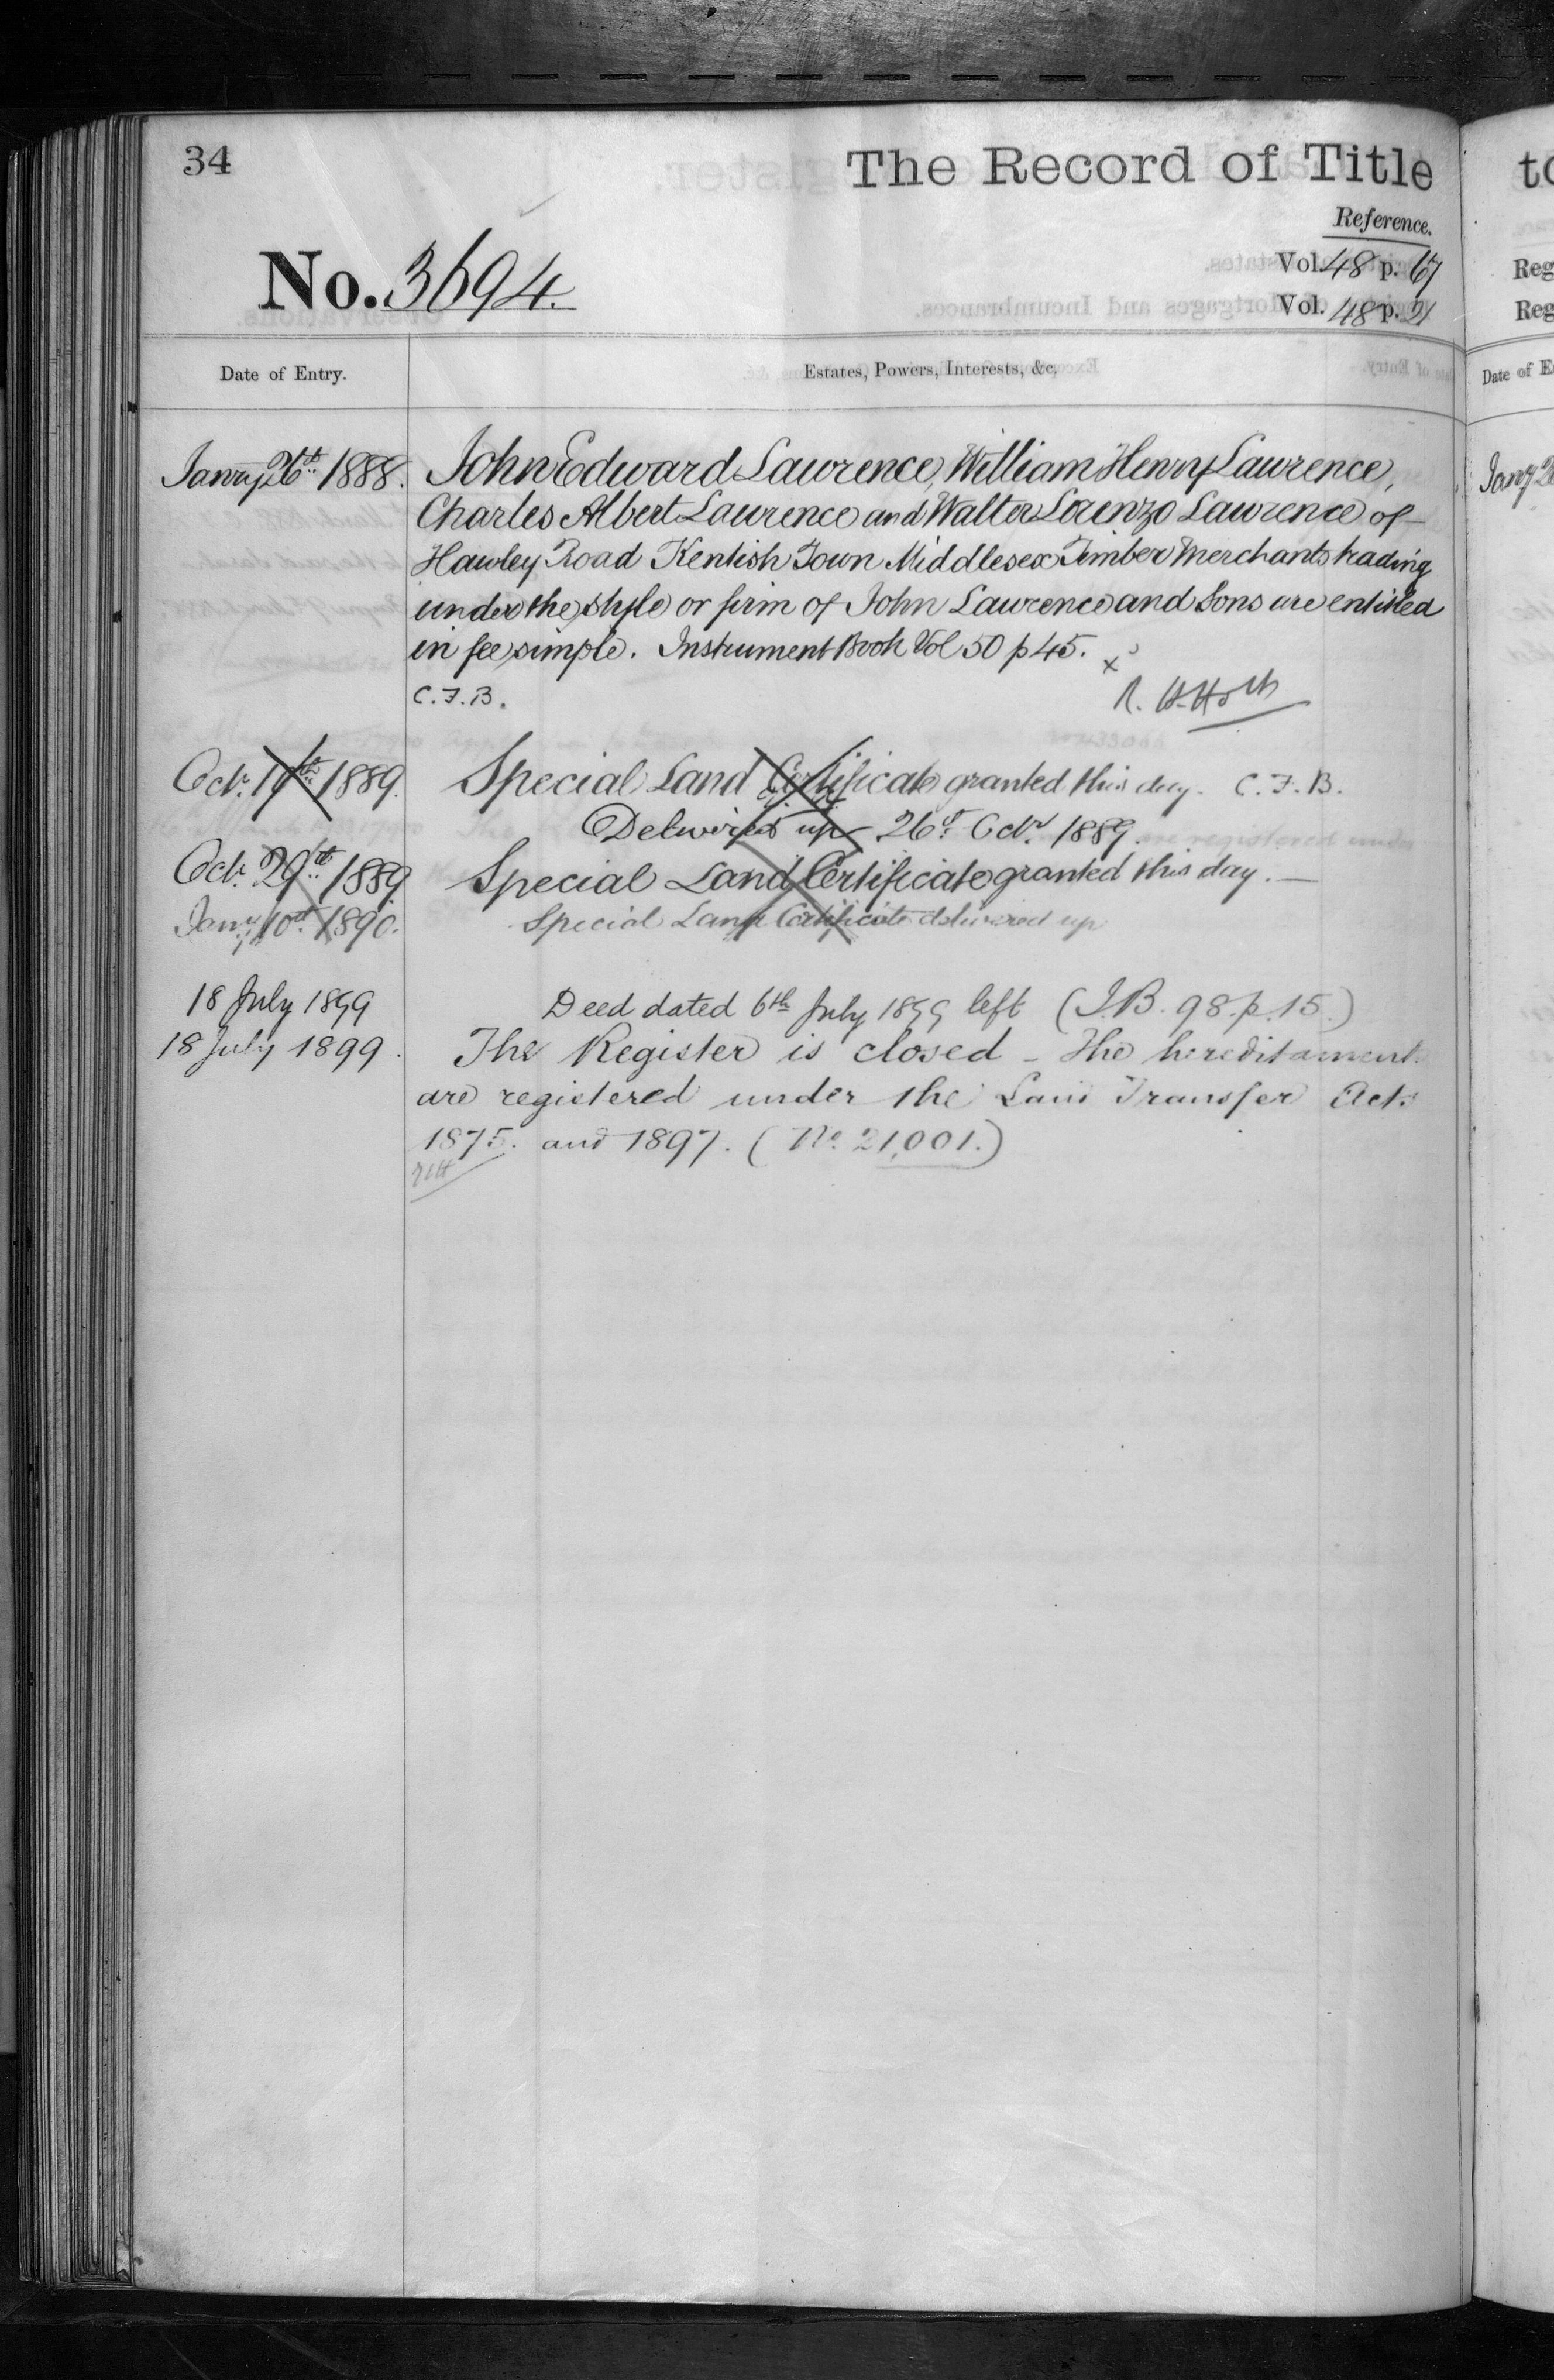 34
The Record of Title
Reference.
Vol. 48 p. 67
No. 3694.
Vol. 48 p. 21
Date of Entry.
Estates, Powers, Interests, &c.
Janry 26th 1888. John Edward Lawrence, William Henry Lawrence,
Charles Albert Lawrence and Walter Lorenzo Lawrence of
Hawley Road Kentish Town Middlesex Timber Merchants trading
under the style or firm of John Lawrence and Sons are entitled
in fee simple. Instrument Book Vol 50 p 45. x
C.F.B.
R. H. Holt
Octr. 1889. Special Land Certificate granted this day. C.F.B.
Delivered up 26th Octr 1889.
Octr. 29th 1889 Special Land Certificate granted this day.—
Jany. 10th 1890. Special Land Certificate delivered up
18 July 1899 Deed dated 6th July 1899 left (I.B. 98. p. 15.)
18 July 1899. The Register is closed - The hereditament
are registered under the Land Transfer Acts
1875. and 1897. (No. 21,001.)
to
Reg
Reg
Date of E
Jany 26